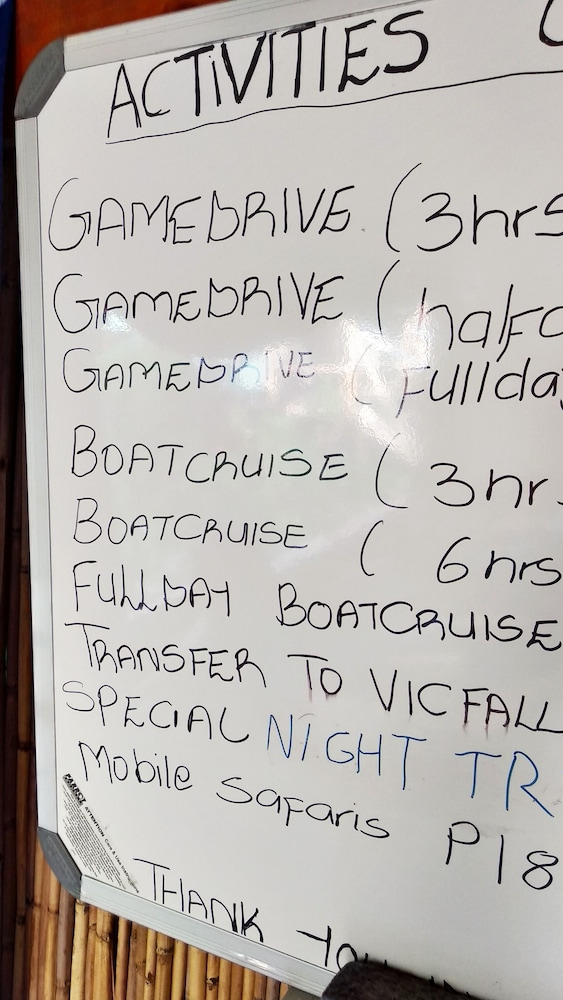 ACTIVITIES
GAMEDRIVE (3hrs
GAMEDRIVE (halfd
GAMEDRIVE (Fullday
BOATCRUISE (3hr
BOATCRUISE (6hrs
FULLDAY BOATCRUISE
TRANSFER TO VICFALL
SPECIAL NIGHT TR
Mobile safaris P18
PARROT ATTENTION
THANK YOU